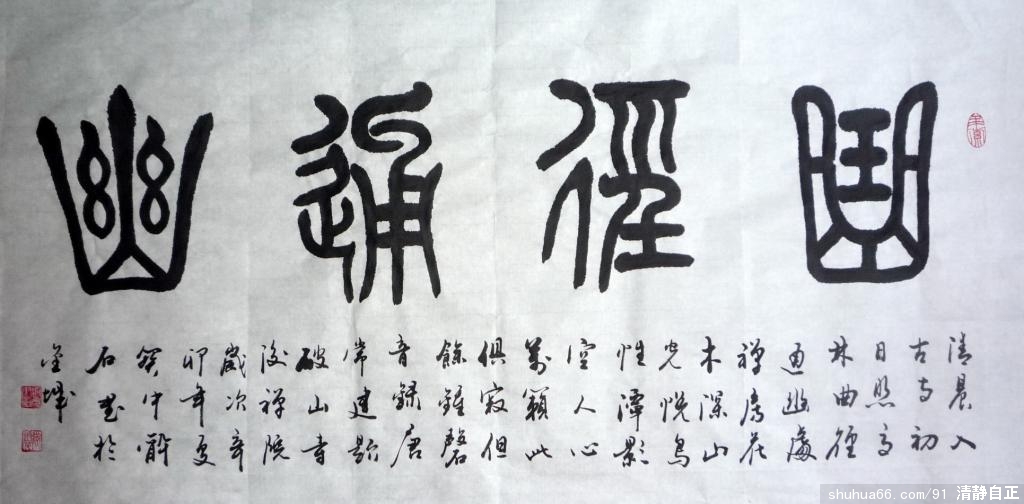 曲徑通幽
清晨入
古寺初
日照高
林曲徑
通幽處
禅房花
木深山
光悦鳥
性潭影
空人心
萬籟此
俱寂但
餘鍾磬
音録唐
常建題
破山寺
後禅院
歲次辛
卯年夏
石书於
金城
shuhua66.com/91 清静自正